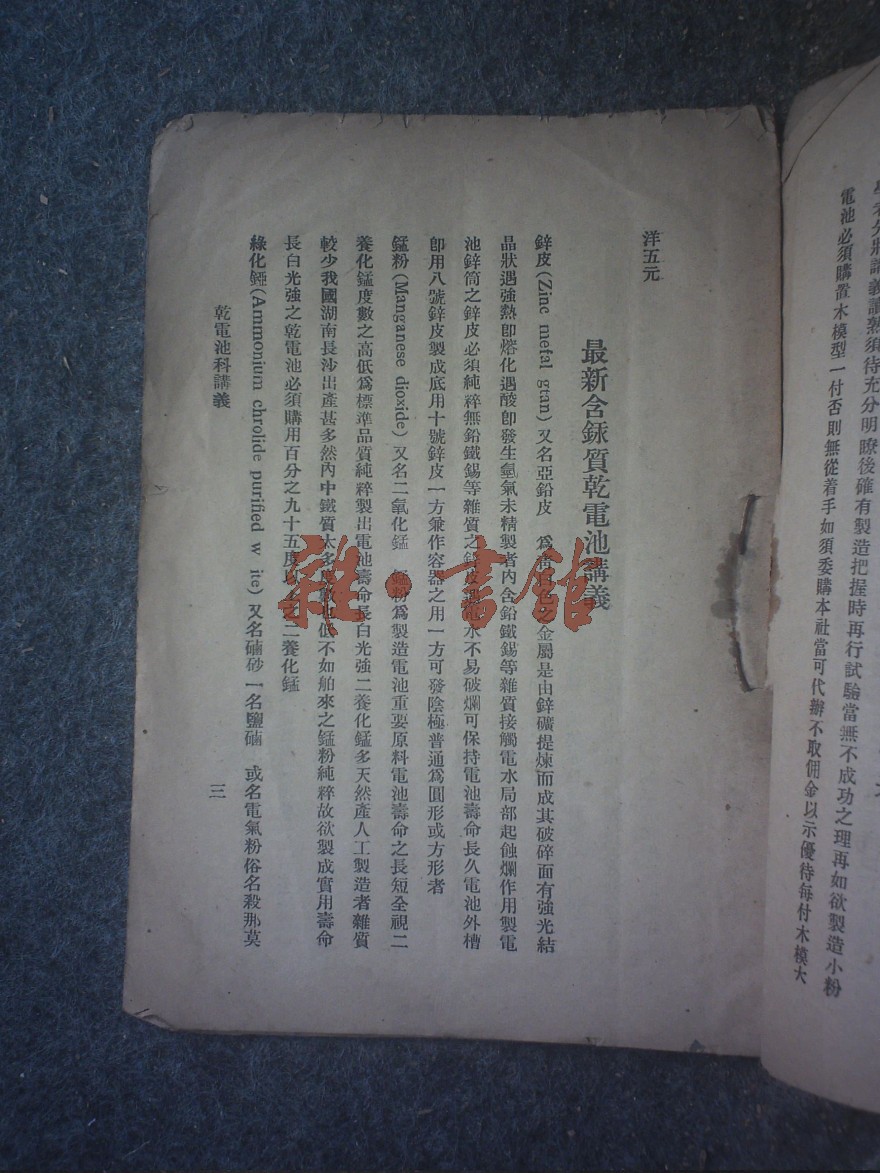 電池必須購置木模型一付否則無從着手如須委購本社當可代辦不取佣金以示優待每付木模大
洋五元
最新含銾質乾電池講義
鋅皮(Zinc metal gtan)又名亞鉛皮 爲青白色之金屬是由鋅礦提煉而成其破碎面有強光結
晶狀遇強熱卽熔化遇酸卽發生氫氣未精製者內含鉛鐵錫等雜質接觸電水局部起蝕爛作用製電
池鋅筒之鋅皮必須純粹無鉛鐵錫等雜質之鋅皮遇電水不易破爛可保持電池壽命長久電池外槽
卽用八號鋅皮製成底用十號鋅皮一方兼作容器之用一方可發陰極普通爲圓形或方形者
錳粉(Manganese dioxide)又名二氧化錳 錳粉爲製造電池重要原料電池壽命之長短全視二
養化錳度數之高低爲標準品質純粹製出電池壽命長白光強二養化錳多天然產人工製造者雜質
較少我國湖南長沙出產甚多然內中鐵質太多度數也低不如舶來之錳粉純粹故欲製成實用壽命
長白光強之乾電池必須購用百分之九十五度以上之二養化錳
綠化錏(Ammonium chrolide purified w ite)又名磠砂一名鹽磠 或名電氣粉俗名殺那莫
乾電池科講義
三
雜·書館